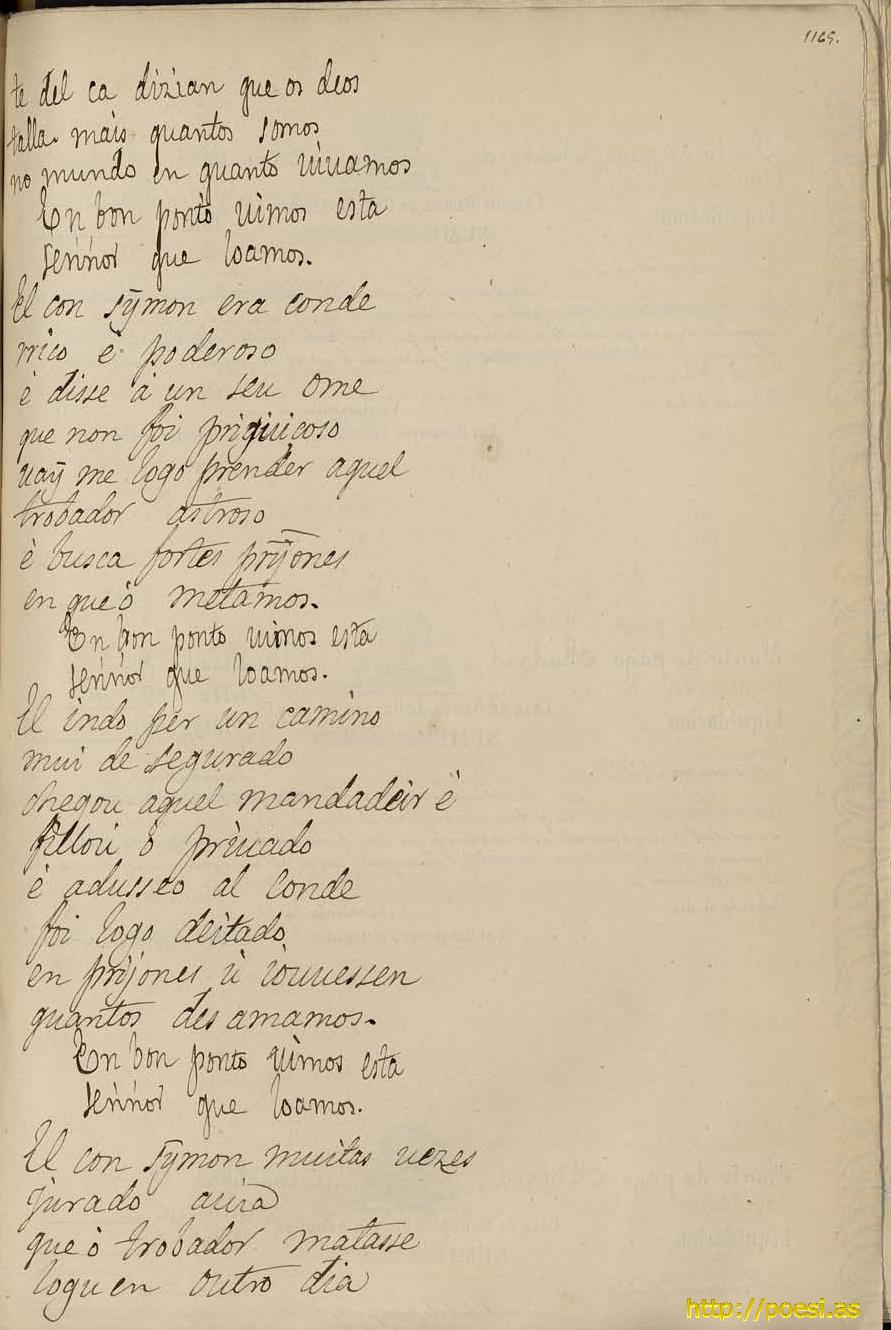 1169.
te del ca dizian que os deos
talla. mais quantos somos
no mundo en quanto uiuamos
En bon ponto uimos esta
sennor que loamos.
El con sÿmon era conde
rrico è poderoso
è disse à un seu ome
que non foi priguiçoso
uaÿ me logo prender aquel
trobador astroso
è busca fortes prijones
en que ò metamos.
En bon ponto uimos esta
sennor que loamos.
El indo per un camino
mui de segurado
chegou aquel mandadeir è
fillou ò priuado
è adusseo al conde
foi logo deitado
en prijones ù iouuessen
quantos des amamos.
En bon ponto uimos esta
sennor que loamos.
El con sÿmon muitas uezes
jurado auia
que ò trobador matasse
loguen outro dia
http://poesi.as